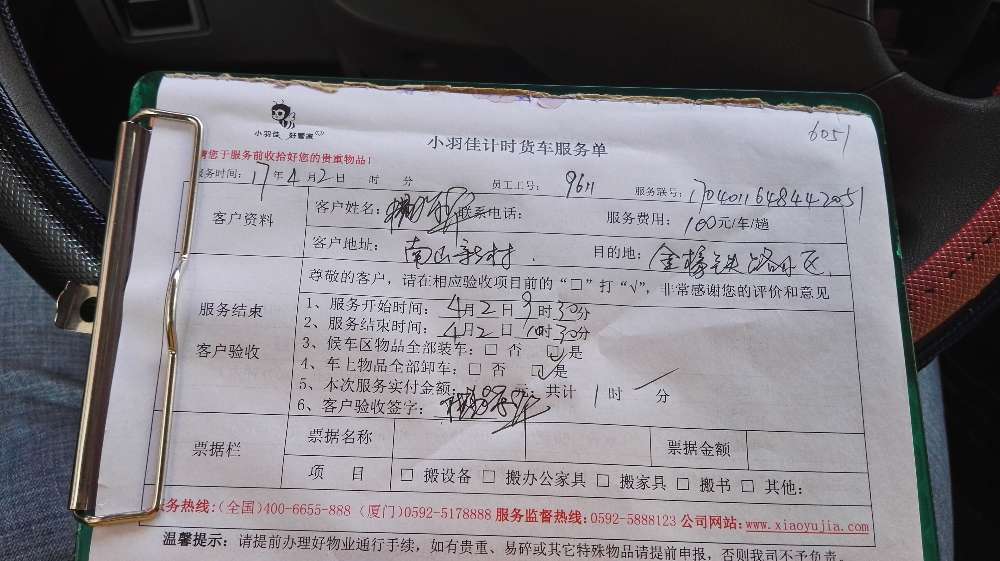 6051
小羽佳 好管家
小羽佳计时货车服务单
请您于服务前收拾好您的贵重物品!
服务时间: 17年4月2日 时 分 员工工号: 9611 服务联号: 170401164844 2051
客户资料 客户姓名: 联系电话: 服务费用: 100元/车/趟
客户地址: 南山新村 目的地: 金榜铁路小区
尊敬的客户,请在相应验收项目前的“□”打“√”,非常感谢您的评价和意见
服务结束
客户验收
1、服务开始时间: 4月2日9时30分
2、服务结束时间: 4月2日10时30分
3、候车区物品全部装车: □ 否 □是
4、车上物品全部卸车: □ 否 □是
5、本次服务实付金额: 元; 共计 1时 分
6、客户验收签字:
票据栏 票据名称 票据金额
项 目 □ 搬设备 □ 搬办公家具 □ 搬家具 □ 搬书 □ 其他:
服务热线:(全国)400-6655-888 (厦门)0592-5178888 服务监督热线:0592-5888123 公司网站:www.xiaoyujia.com
温馨提示: 请提前办理好物业通行手续, 如有贵重、易碎或其它特殊物品请提前申报, 否则我司不予负责。